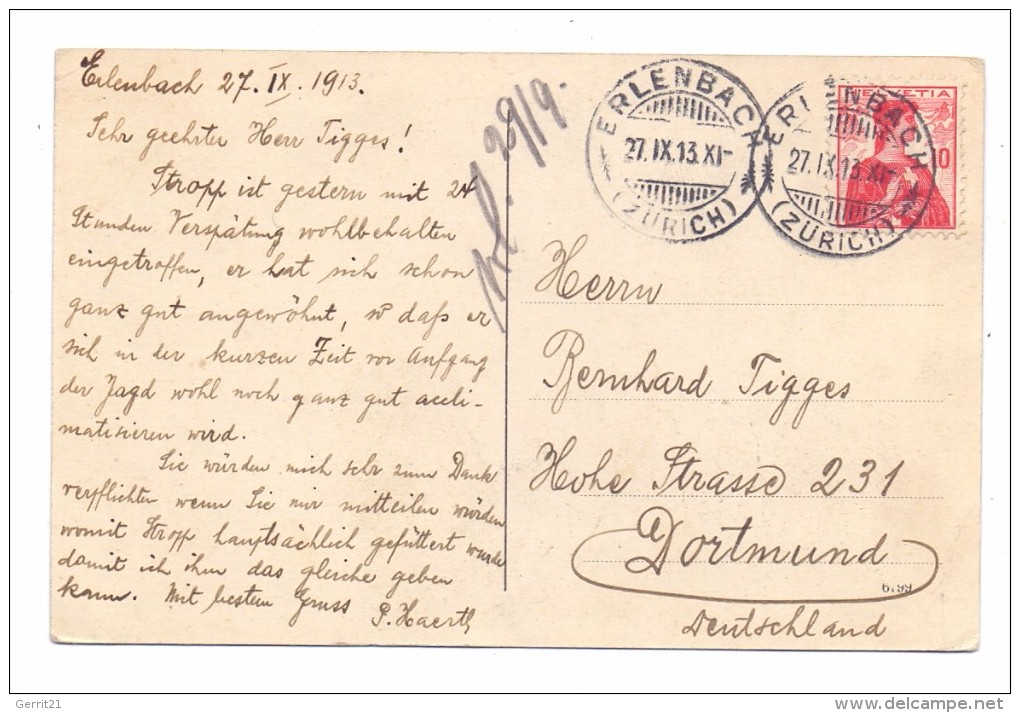 Erlenbach 27. IX. 1913.
Sehr geehrter Herr Tigges!
Stropp ist gestern mit 24
Stunden Verspätung wohlbehalten
eingetroffen, er hat sich schon
ganz gut angewöhnt, so daß er
sich in der kurzen Zeit vor Aufgang
der Jagd wohl noch ganz gut accli-
matisieren wird.
Sie würden mich sehr zum Dank
verpflichten wenn Sie mir mitteilen würden
womit Stropp hauptsächlich gefüttert wurde
damit ich ihm das gleiche geben
kann. Mit bestem Gruss
P. Haerth
29/9.
ERLENBACH
27.IX.13.XI-
(ZÜRICH)
ERLENBACH
27.IX.13.XI-
(ZÜRICH)
HELVETIA
10
Herrn
Bernhard Tigges
Hohe Strasse 231
Dortmund
6199
Deutschland
Gerrit21
delcampe.net